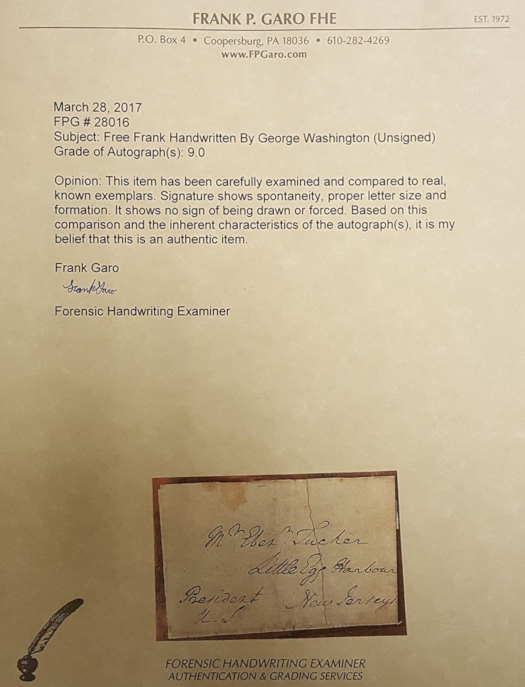 FRANK P. GARO FHE
EST. 1972
P.O. Box 4 • Coopersburg, PA 18036 • 610-282-4269
www.FPGaro.com
March 28, 2017
FPG # 28016
Subject: Free Frank Handwritten By George Washington (Unsigned)
Grade of Autograph(s): 9.0
Opinion: This item has been carefully examined and compared to real,
known exemplars. Signature shows spontaneity, proper letter size and
formation. It shows no sign of being drawn or forced. Based on this
comparison and the inherent characteristics of the autograph(s), it is my
belief that this is an authentic item.
Frank Garo
Frank Garo
Forensic Handwriting Examiner
Mr Eben.r Tucker
Little Egg Harbour
President New Jersey
U.S
FORENSIC HANDWRITING EXAMINER
AUTHENTICATION & GRADING SERVICES